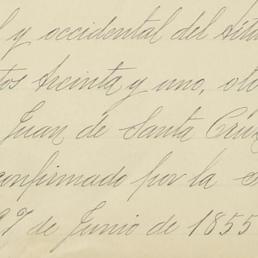 l y occidental del situ
tos treinta y uno, oto
Juan de Santa Cruz
confirmado por la
27 de Junio de 1855